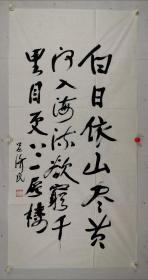 白日依山尽黄
河入海流欲穷千
里目更上一层楼